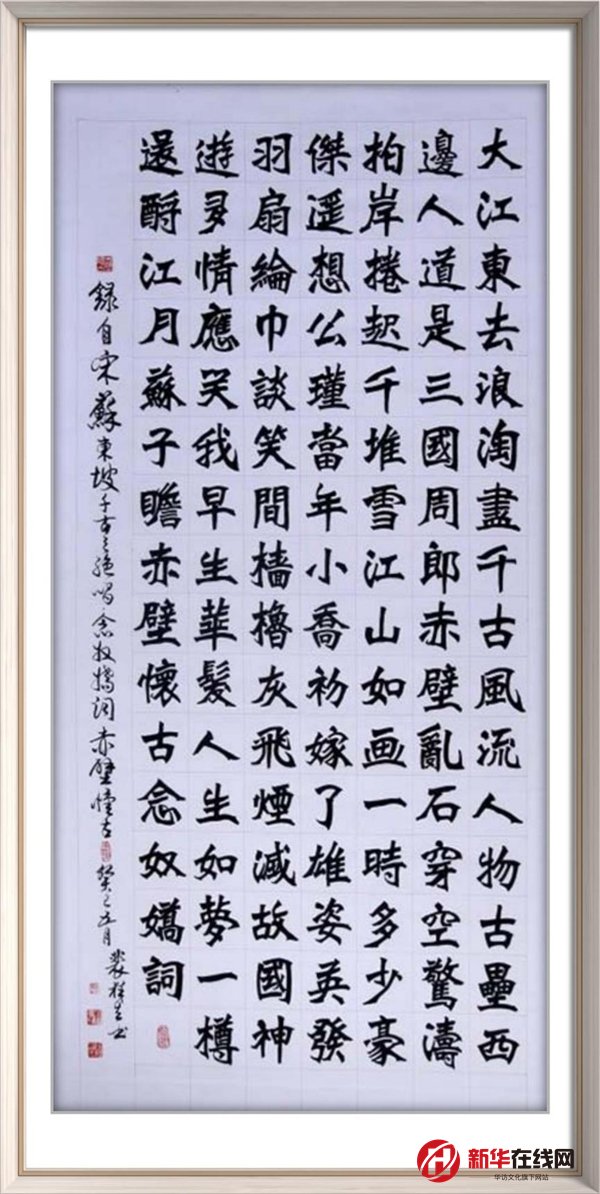 大江東去浪淘盡千古風流人物古壘西
邊人道是三國周郎赤壁亂石穿空驚濤
拍岸捲起千堆雪江山如画一時多少豪
傑遥想公瑾當年小喬初嫁了雄姿英發
羽扇綸巾談笑間檣櫓灰飛煙滅故國神
遊多情應笑我早生華髮人生如夢一樽
還酹江月蘇子瞻赤壁懷古念奴嬌詞
錄自宋蘇東坡千古之絕唱念奴嬌詞赤壁懷古 癸巳五月
新华在线网
华访文化旗下网站